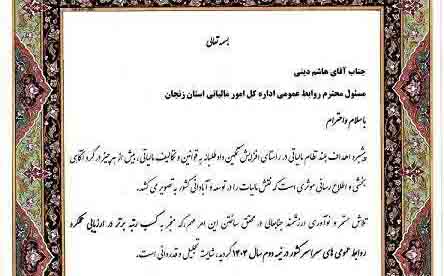 بسمه تعالی
جناب آقای هاشم دینی
مسئول محترم روابط عمومی اداره کل امور مالیاتی استان زنجان
باسلام واحترام
پیشبرد اهداف بلند نظام مالیاتی در راستای افزایش تمکین داوطلبانه به قوانین و تکالیف مالیاتی، بیش از هر چیز در گرو آگاهی
بخشی و اطلاع رسانی موثری است که نقش مالیات را در توسعه و آبادانی کشور به تصویر می کشد.
تلاش مستمر و نوآوری ارزشمند جنابعالی در محقق ساختن این امر مهم که منجر به کسب رتبه برتر در ارزیابی عملکرد
روابط عمومی های سراسر کشور در نیمه دوم سال ۱۴۰۴ گردید، شایسته تجلیل و قدردانی است.